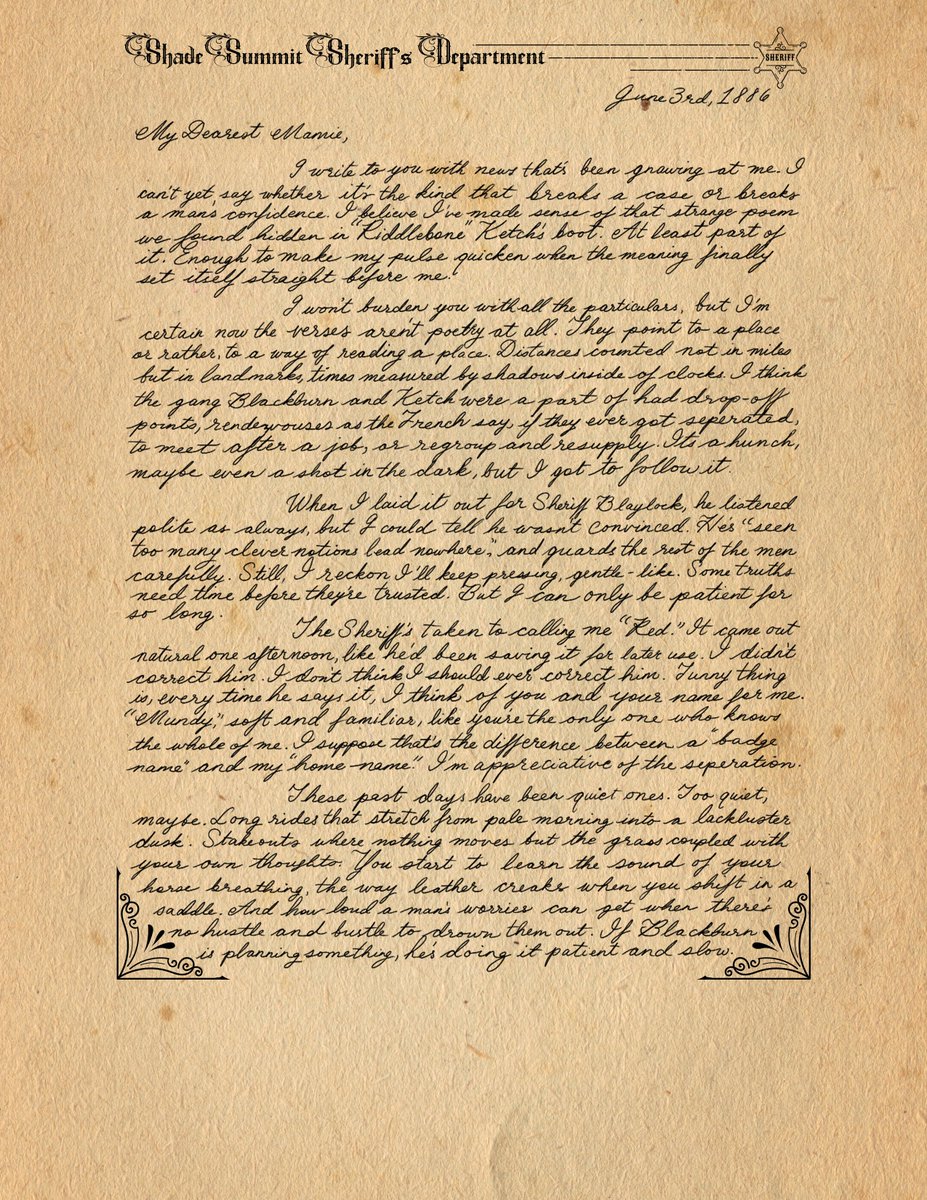 Shade Summit Sheriff's Department
SHERIFF
June 3rd, 1886
My Dearest Mamie,
I write to you with news that's been gnawing at me. I
can't yet say whether it's the kind that breaks a case or breaks
a man's confidence. I believe I've made sense of that strange poem
we found hidden in "Riddlebone" Ketch's boot. At least part of
it. Enough to make my pulse quicken when the meaning finally
set itself straight before me.
I won't burden you with all the particulars, but I'm
certain now the verses aren't poetry at all. They point to a place
or rather, to a way of reading a place. Distances counted not in miles
but in landmarks, times measured by shadows inside of clocks. I think
the gang Blackburn and Ketch were a part of had drop-off
points, rendezvouses as the French say, if they ever got seperated,
to meet after a job, or regroup and resupply. It's a hunch,
maybe even a shot in the dark, but I got to follow it.
When I laid it out for Sheriff Blaylock, he listened
polite as always, but I could tell he wasn't convinced. He's "seen
too many clever notions lead nowhere", and guards the rest of the men
carefully. Still, I reckon I'll keep pressing, gentle-like. Some truths
need time before they're trusted. But I can only be patient for
so long.
The Sheriff's taken to calling me "Red." It came out
natural one afternoon, like he'd been saving it for later use. I didn't
correct him. I don't think I should ever correct him. Funny thing
is, every time he says it, I think of you and your name for me.
"Mundy," soft and familiar, like you're the only one who knows
the whole of me. I suppose that's the difference between a "badge
name" and my "home-name." I'm appreciative of the seperation.
These past days have been quiet ones. Too quiet,
maybe. Long rides that stretch from pale morning into a lackluster
dusk. Stakeouts where nothing moves but the grass coupled with
your own thoughts. You start to learn the sound of your
horse breathing, the way leather creaks when you shift in a
saddle. And how loud a man's worries can get when there's
no hustle and bustle to drown them out. If Blackburn
is planning something, he's doing it patient and slow.